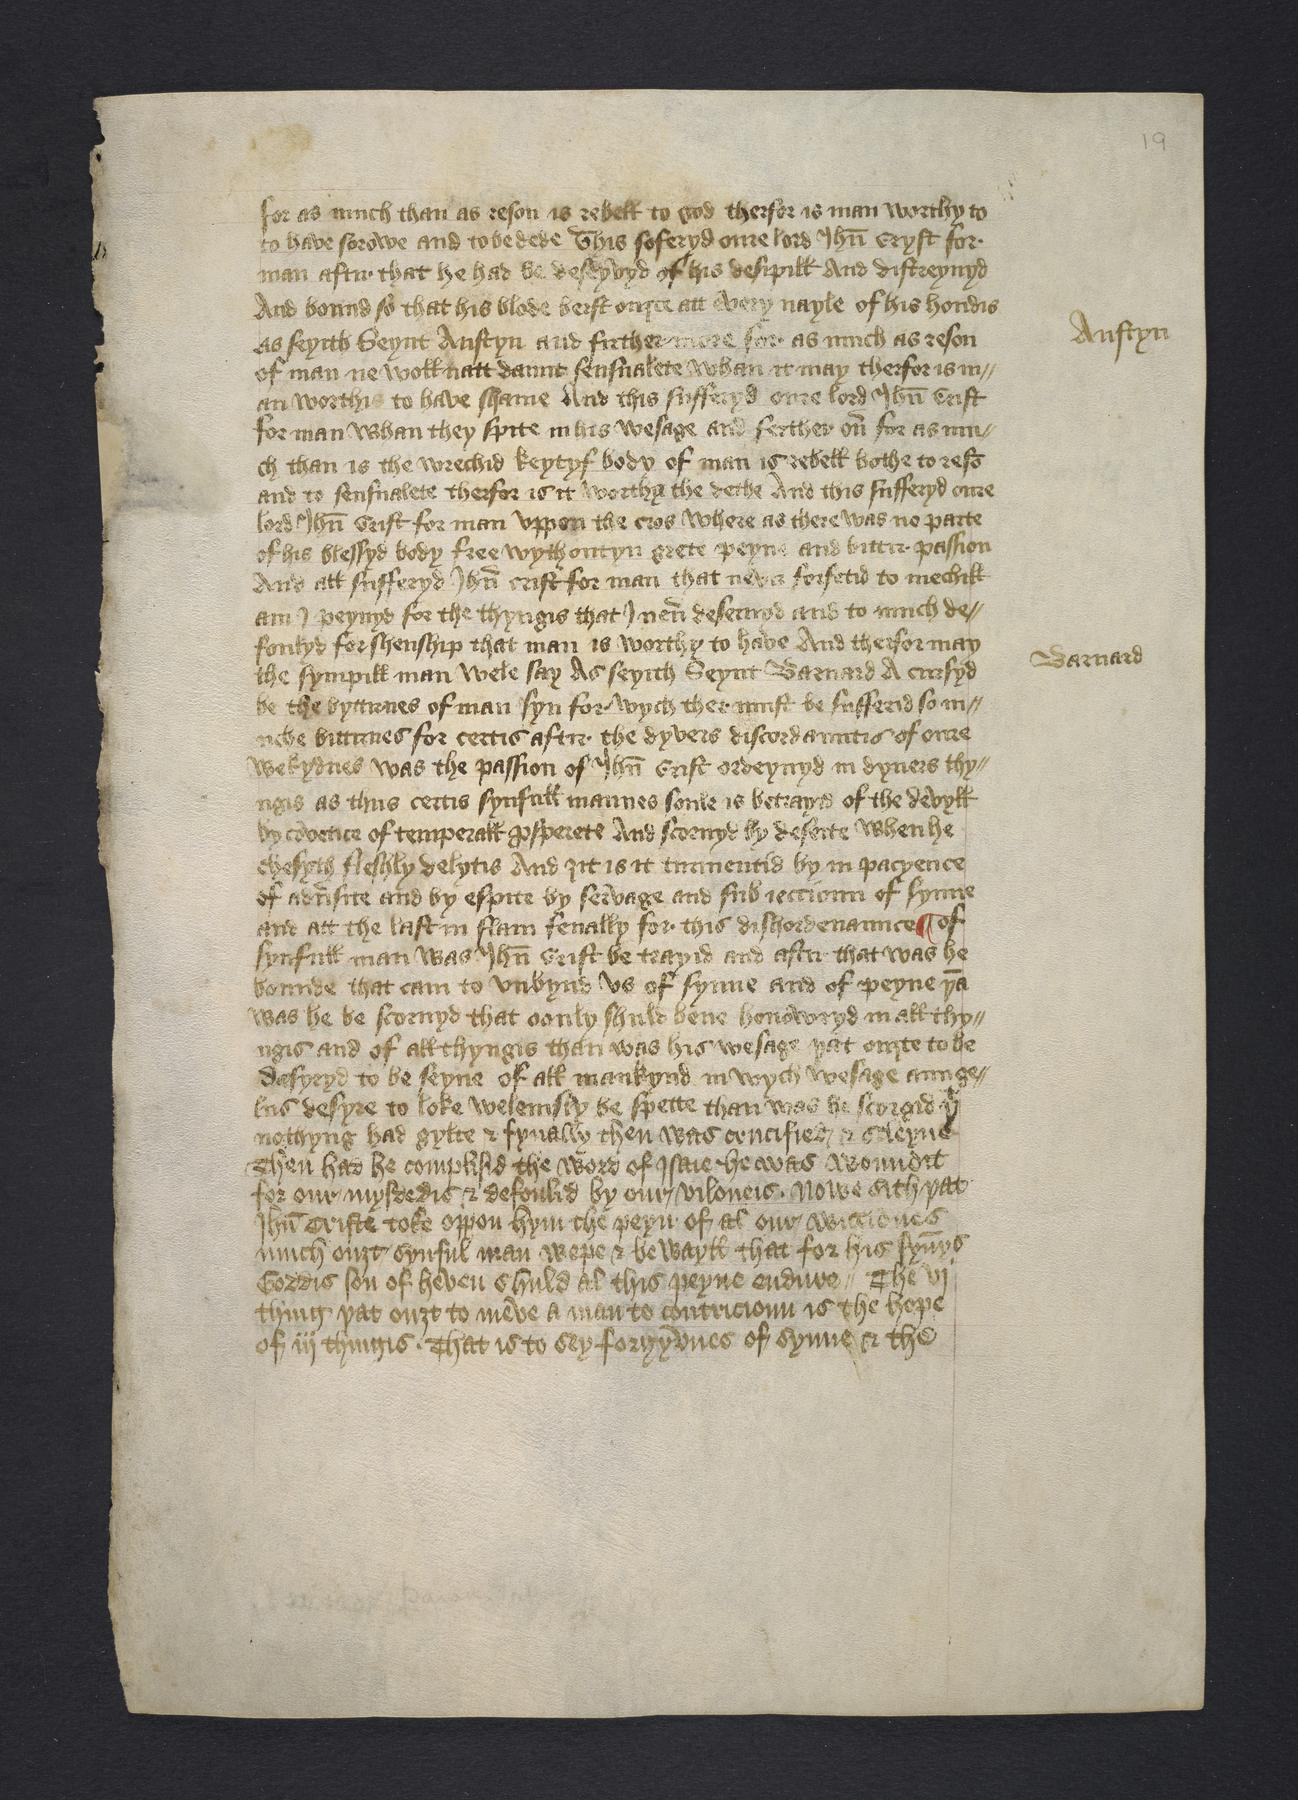 19
for as much than as reson is rebell to god therfor is man worthy to
to have sorowe and to be dede This soferyd oure lord Jhū Cryst for
man aftir that he had be desceyvyd of his desipill And distreynyd
And bound so that his blode berst ouzte att every nayle of his hondis
as seyith Seynt Austyn and further more for as much as reson
Austyn
of man ne woll natt daunt sensualete whan it may therfor is m//
an worthi to have shame And this sufferyd oure lord Jhū Crist
for man whan they spite in his wesage and ferther ou͞ for as mu//
ch than is the wrechid keytyf body of man is rebell bothe to reso͞
and to sensualete therfor is it worthy the dethe And this sufferyd oure
lord Jhū Crist for man uppon the cros where as there was no parte
of his blessyd body free wythoutyn grete peyne and bittir passion
And all sufferyd Jhū crist for man that never forfetid to mechill
am I peynyd for the thyngis that I neu͞ deseruyd and to much de//
foulyd for shenship that man is worthy to have And therfor may
the sympill man wele say As seyith Seynt Barnard A cursyd
Barnard
be the byttirnes of man syn for wych ther must be sufferid so m//
uche bittirnes for certis aftir the dyvers discordauntis of oure
wekydnes was the passion of Jhū Crist ordeynyd in dyuers thy//
ngis as thus certis synfull mannes soule is betrayd of the devyll
by covetice of temperall ꝓsperete And scornyd by deseite when he
chesyth fleshly delytis And zit is it turmentid by in pacyence
of adu͞site and by espite by servage and sub iectioun of synne
and att the last in slain fenally for this dishordenaunce ¶ of
synfull man was Jhū Crist be trayid and aftir that was he
bounde that cam to vnbynd vs of synne and of peyne þa͞
was he be scornyd that oonly shuld bene honowryd in all thy//
ngis and of all thyngis than was his wesage þat ouzte to be
dasyryd to be seyne of all mankynd in wych wesage aunge//
lus desyre to loke welemsly be spette than was he scorgid þt
nothyng had gylte & fynally then was crucified & sleyne
Then had he complisid the word of Isaie he was woundit
for our mysdedis & defoulid by our viloneis. Nowe sith þat
Jhū Criste toke oppon hym the peyn of al our wiccidnes
much ouzt synful man wepe & bewayll that for his synnys
Goddis son of heven shuld al this peyne endure // The vj
thing þat ouzt to meve a man to contricioun is the hope
of iij thingis. That is to sey forzyvnes of synne & the